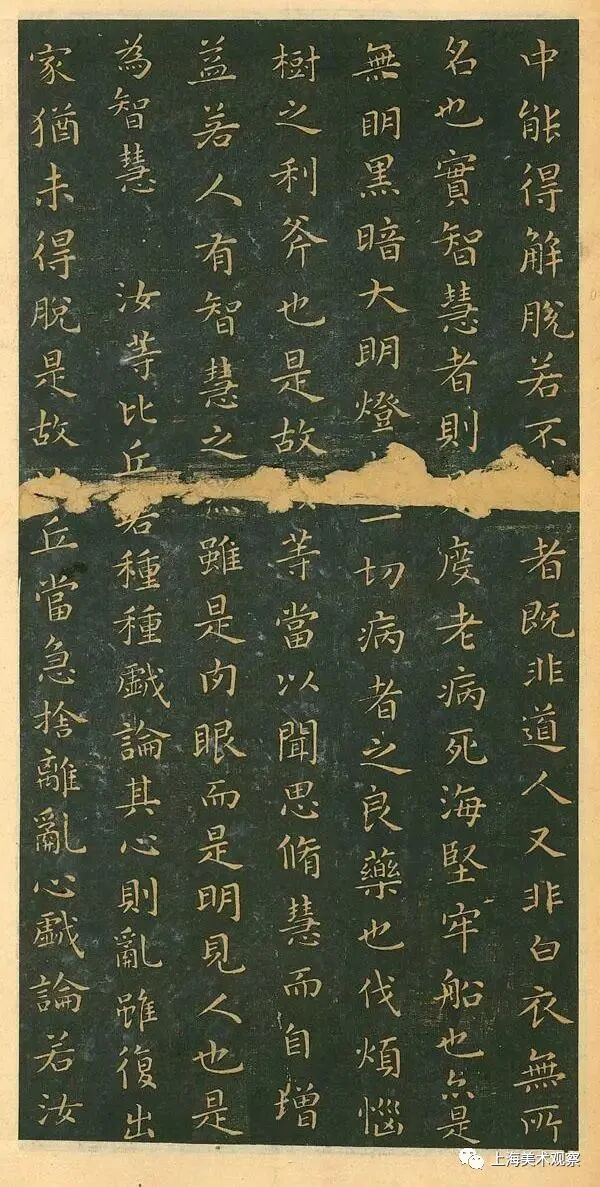 中能得解脫若不者既非道人又非白衣無所
名也實智慧者則度老病死海堅牢船也亦是
無明黑暗大明燈一切病者之良藥也伐煩惱
樹之利斧也是故等當以聞思脩慧而自增
益若人有智慧之雖是肉眼而是明見人也是
為智慧 汝等比丘若種種戲論其心則亂雖復出
家猶未得脫是故丘當急捨離亂心戲論若汝
上海美术观察